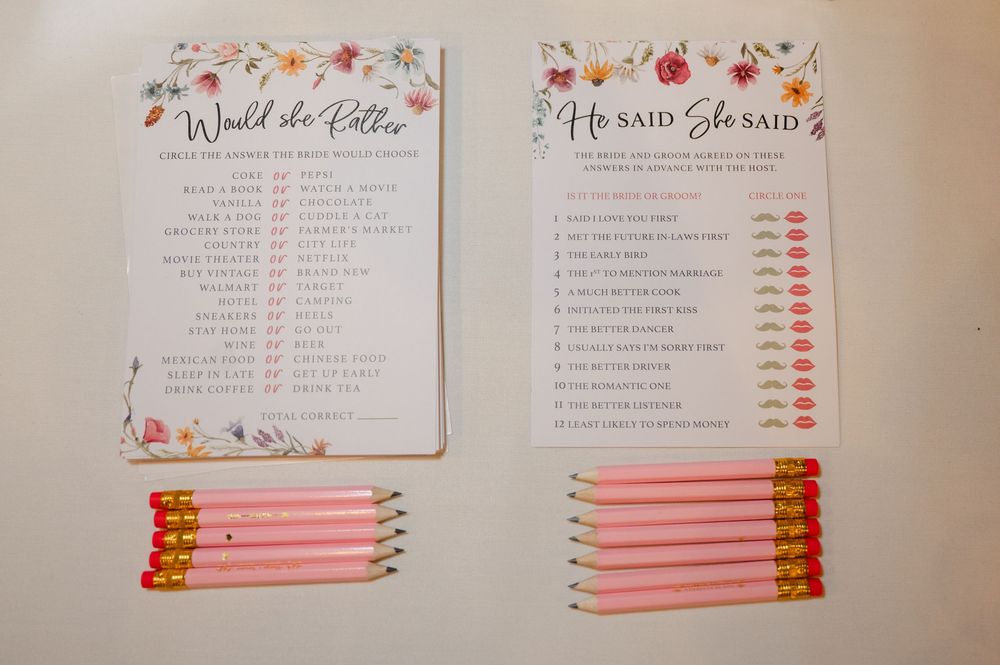 Would she Rather
CIRCLE THE ANSWER THE BRIDE WOULD CHOOSE
COKE or PEPSI
READ A BOOK or WATCH A MOVIE
VANILLA or CHOCOLATE
WALK A DOG or CUDDLE A CAT
GROCERY STORE or FARMER'S MARKET
COUNTRY or CITY LIFE
MOVIE THEATER or NETFLIX
BUY VINTAGE or BRAND NEW
WALMART or TARGET
HOTEL or CAMPING
SNEAKERS or HEELS
STAY HOME or GO OUT
WINE or BEER
MEXICAN FOOD or CHINESE FOOD
SLEEP IN LATE or GET UP EARLY
DRINK COFFEE or DRINK TEA
TOTAL CORRECT ______
He SAID She SAID
THE BRIDE AND GROOM AGREED ON THESE
ANSWERS IN ADVANCE WITH THE HOST.
IS IT THE BRIDE OR GROOM? CIRCLE ONE
1 SAID I LOVE YOU FIRST
2 MET THE FUTURE IN-LAWS FIRST
3 THE EARLY BIRD
4 THE 1ST TO MENTION MARRIAGE
5 A MUCH BETTER COOK
6 INITIATED THE FIRST KISS
7 THE BETTER DANCER
8 USUALLY SAYS I'M SORRY FIRST
9 THE BETTER DRIVER
10 THE ROMANTIC ONE
11 THE BETTER LISTENER
12 LEAST LIKELY TO SPEND MONEY